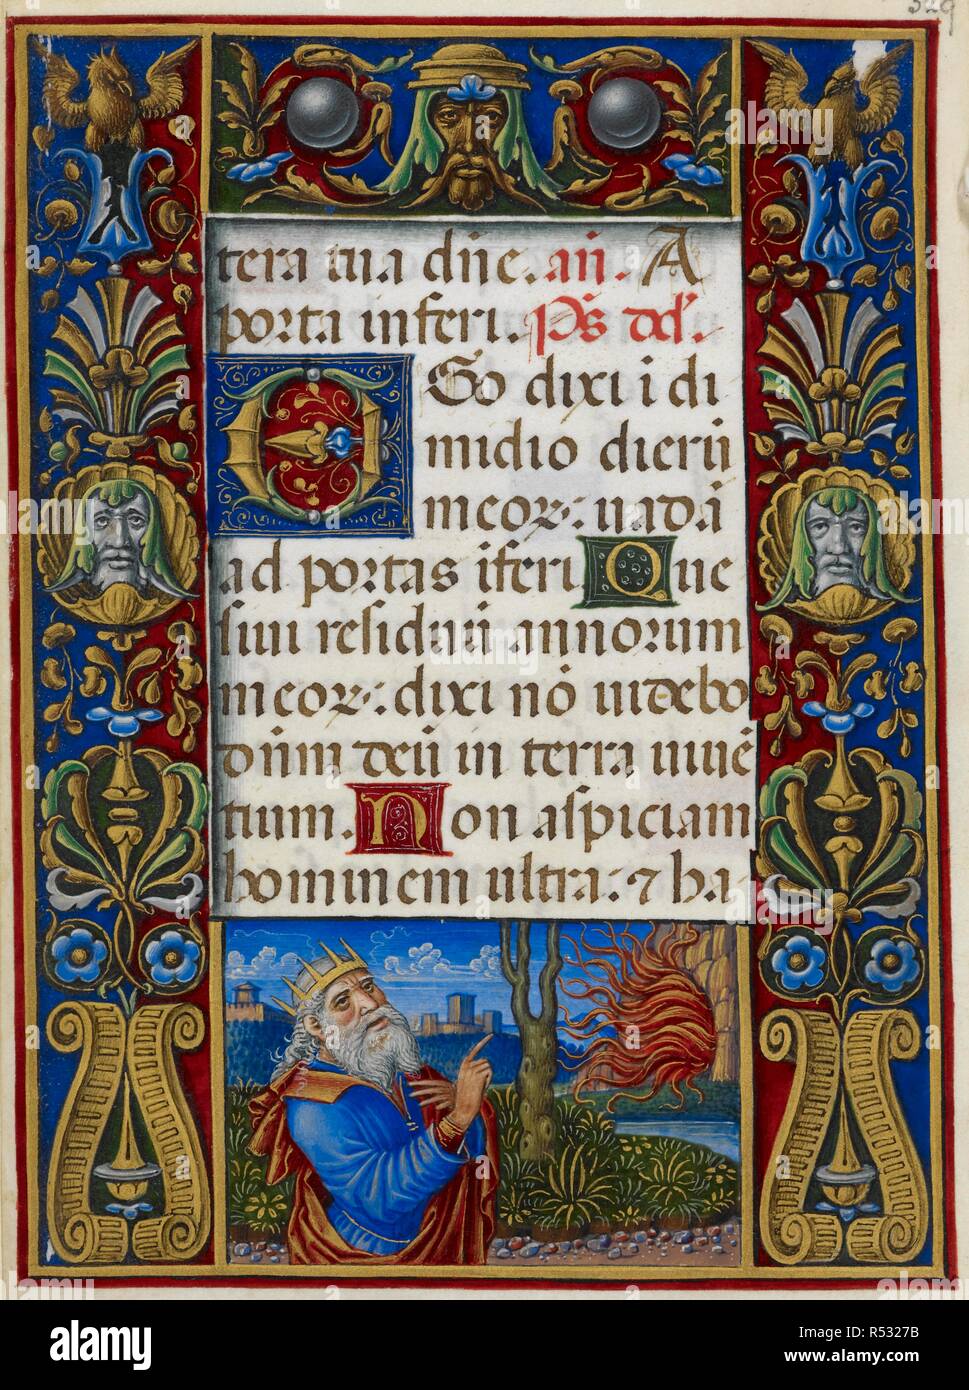 329
tera tua dñe. añ. A
porta inferi. Ps̃ del̛.
EGo dixi i di
midio dierũ
meoꝝ: uadã
ad portas ĩferi Que
siui residuũ annorum
meoꝝ: dixi nõ uidebo
dñm deũ in terra uiuẽ
tium. Non aspiciam
hominem ultra: ⁊ ha
alamy
Image ID: R5327B
www.alamy.com